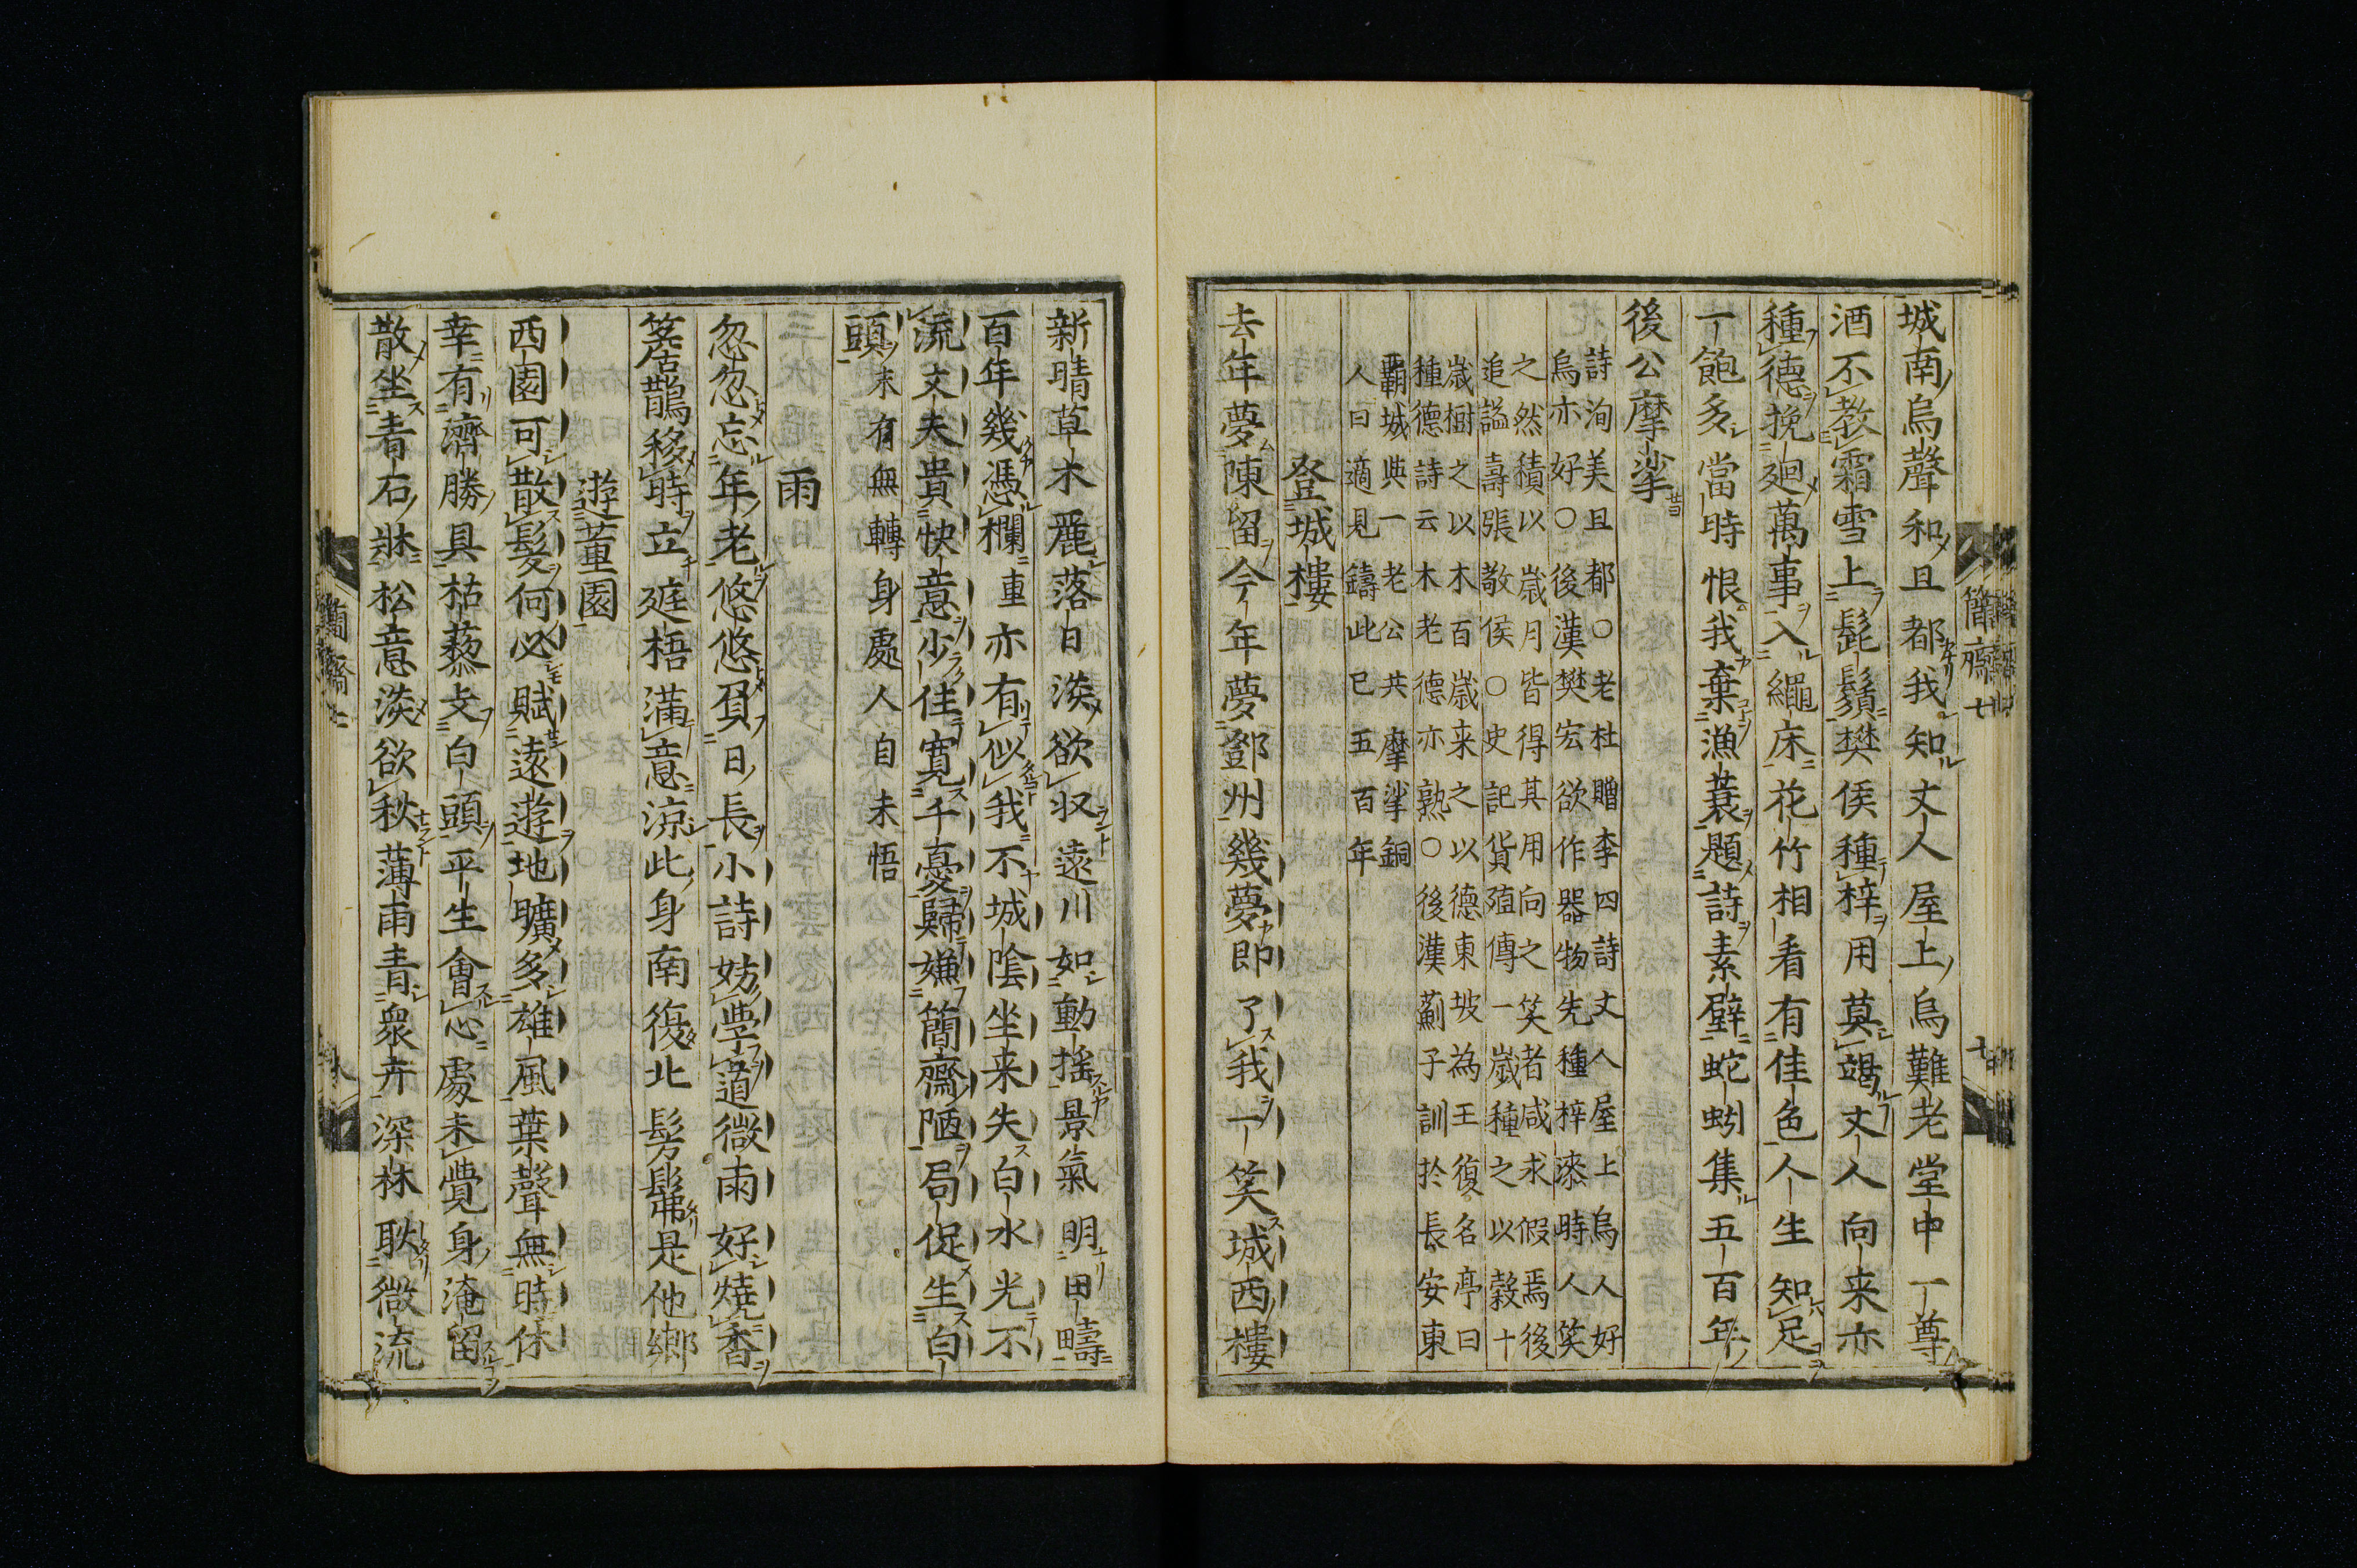 城南烏聲和且都我知丈人屋上烏難老堂中一尊
酒不教霜雪上髭鬚樊侯種梓用莫竭丈人向来亦
種德挽廻萬事入繩床花竹相看有佳色人生知足
一飽多當時恨我棄漁蓑題詩素壁蛇蚓集五百年
後公摩挲
詩洵美且都○老杜贈李四詩丈人屋上烏人好
烏亦好○後漢樊宏欲作器物先種梓漆時人笑
之然積以歲月皆得其用向之笑者咸求假焉後
追謚壽張敬侯○史記貨殖傳一歲種之以穀十
歲樹之以木百歲来之以德東坡為王復名亭曰
種德詩云木老德亦熟○後漢薊子訓於長安東
覇城與一老公共摩挲銅
人曰適見鑄此已五百年
登城樓
去年夢陳留今年夢鄧州幾夢即了我一笑城西樓
新晴草木麗落日淡欲収遠川如動搖景氣明田疇
百年幾憑欄重亦有似我不城隂坐来失白水光不
流丈夫貴快意少佳寛千憂歸嫌簡齋陋局促生白
頭末有無轉身處人自未悟
雨
忽忽忘年老悠悠負日長小詩妨學道微雨好燒香
簷鵲移時立庭梧滿意涼此身南復北髣髴是他鄉
遊董園
西園可散髮何必賦遠遊地曠多雄風葉聲無時休
幸有濟勝具枯藜支白頭平生會心處未覺身淹留
散坐青石牀松意淡欲秋薄雨青衆卉深林耿微流
簡齋七